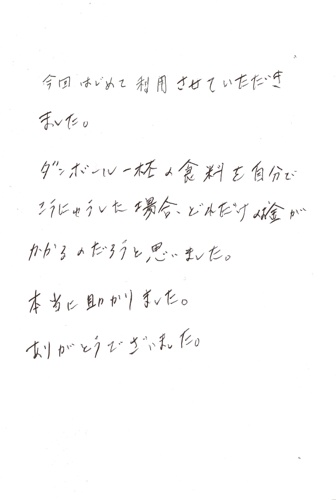 今回はじめて利用させていただき
ました。
ダンボール一杯の食料を自分で
こうにゅうした場合、どれだけの金が
かかるのだろうと思いました。
本当に助かりました。
ありがとうございました。